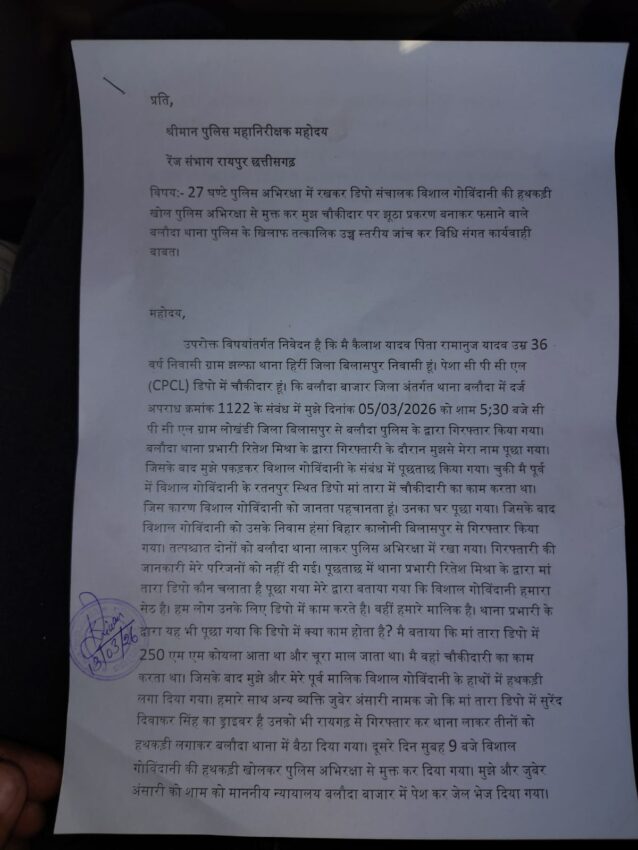 प्रति,
श्रीमान पुलिस महानिरीक्षक महोदय
रेंज संभाग रायपुर छत्तीसगढ़
विषय:- 27 घण्टे पुलिस अभिरक्षा में रखकर डिपो संचालक विशाल गोविंदानी की हथकड़ी
खोल पुलिस अभिरक्षा से मुक्त कर मुझ चौकीदार पर झूठा प्रकरण बनाकर फसाने वाले
बलौदा थाना पुलिस के खिलाफ तत्कालिक उच्च स्तरीय जांच कर विधि संगत कार्यवाही
बाबत।
महोदय,
उपरोक्त विषयांतर्गत निवेदन है कि मै कैलाश यादव पिता रामानुज यादव उम्र 36
वर्ष निवासी ग्राम झल्फा थाना हिर्री जिला बिलासपुर निवासी हूं। पेशा सी पी सी एल
(CPCL) डिपो में चौकीदार हूं। कि बलौदा बाजार जिला अंतर्गत थाना बलौदा में दर्ज
अपराध क्रमांक 1122 के संबंध में मुझे दिनांक 05/03/2026 को शाम 5;30 बजे सी
पी सी एल ग्राम लोखंडी जिला बिलासपुर से बलौदा पुलिस के द्वारा गिरफ्तार किया गया।
बलौदा थाना प्रभारी रितेश मिश्रा के द्वारा गिरफ्तारी के दौरान मुझसे मेरा नाम पूछा गया।
जिसके बाद मुझे पकड़कर विशाल गोबिंदानी के संबंध में पूछताछ किया गया। चुकी मै पूर्व
में विशाल गोबिंदानी के रतनपुर स्थित डिपो मां तारा में चौकीदारी का काम करता था।
जिस कारण विशाल गोबिंदानी को जानता पहचानता हूं। उनका घर पूछा गया। जिसके बाद
विशाल गोबिंदानी को उसके निवास हंसा विहार कालोनी बिलासपुर से गिरफ्तार किया
गया। तत्पश्चात दोनों को बलौदा थाना लाकर पुलिस अभिरक्षा में रखा गया। गिरफ्तारी की
जानकारी मेरे परिजनों को नहीं दी गई। पूछताछ में थाना प्रभारी रितेश मिश्रा के द्वारा मां
तारा डिपो कौन चलाता है पूछा गया मेरे द्वारा बताया गया कि विशाल गोबिंदानी हमारा
सेठ है। हम लोग उनके लिए डिपो में काम करते है। वहीं हमारे मालिक है। थाना प्रभारी के
द्वारा यह भी पूछा गया कि डिपो में क्या काम होता है? मै बताया कि मां तारा डिपो में
250 एम एम कोयला आता था और चूरा माल जाता था। मै वहां चौकीदारी का काम
करता था। जिसके बाद मुझे और मेरे पूर्व मालिक विशाल गोबिंदानी के हाथों में हथकड़ी
लगा दिया गया। हमारे साथ अन्य व्यक्ति जुबेर अंसारी नामक जो कि मां तारा डिपो में सुरेंद
दिवाकर सिंह का ड्राइबर है उनको भी रायगढ़ से गिरफ्तार कर थाना लाकर तीनों को
हथकड़ी लगाकर बलौदा थाना में बैठा दिया गया। दूसरे दिन सुबह 9 बजे विशाल
गोबिंदानी की हथकड़ी खोलकर पुलिस अभिरक्षा से मुक्त कर दिया गया। मुझे और जुबेर
अंसारी को शाम को माननीय न्यायालय बलौदा बाजार में पेश कर जेल भेज दिया गया।
13/03/26